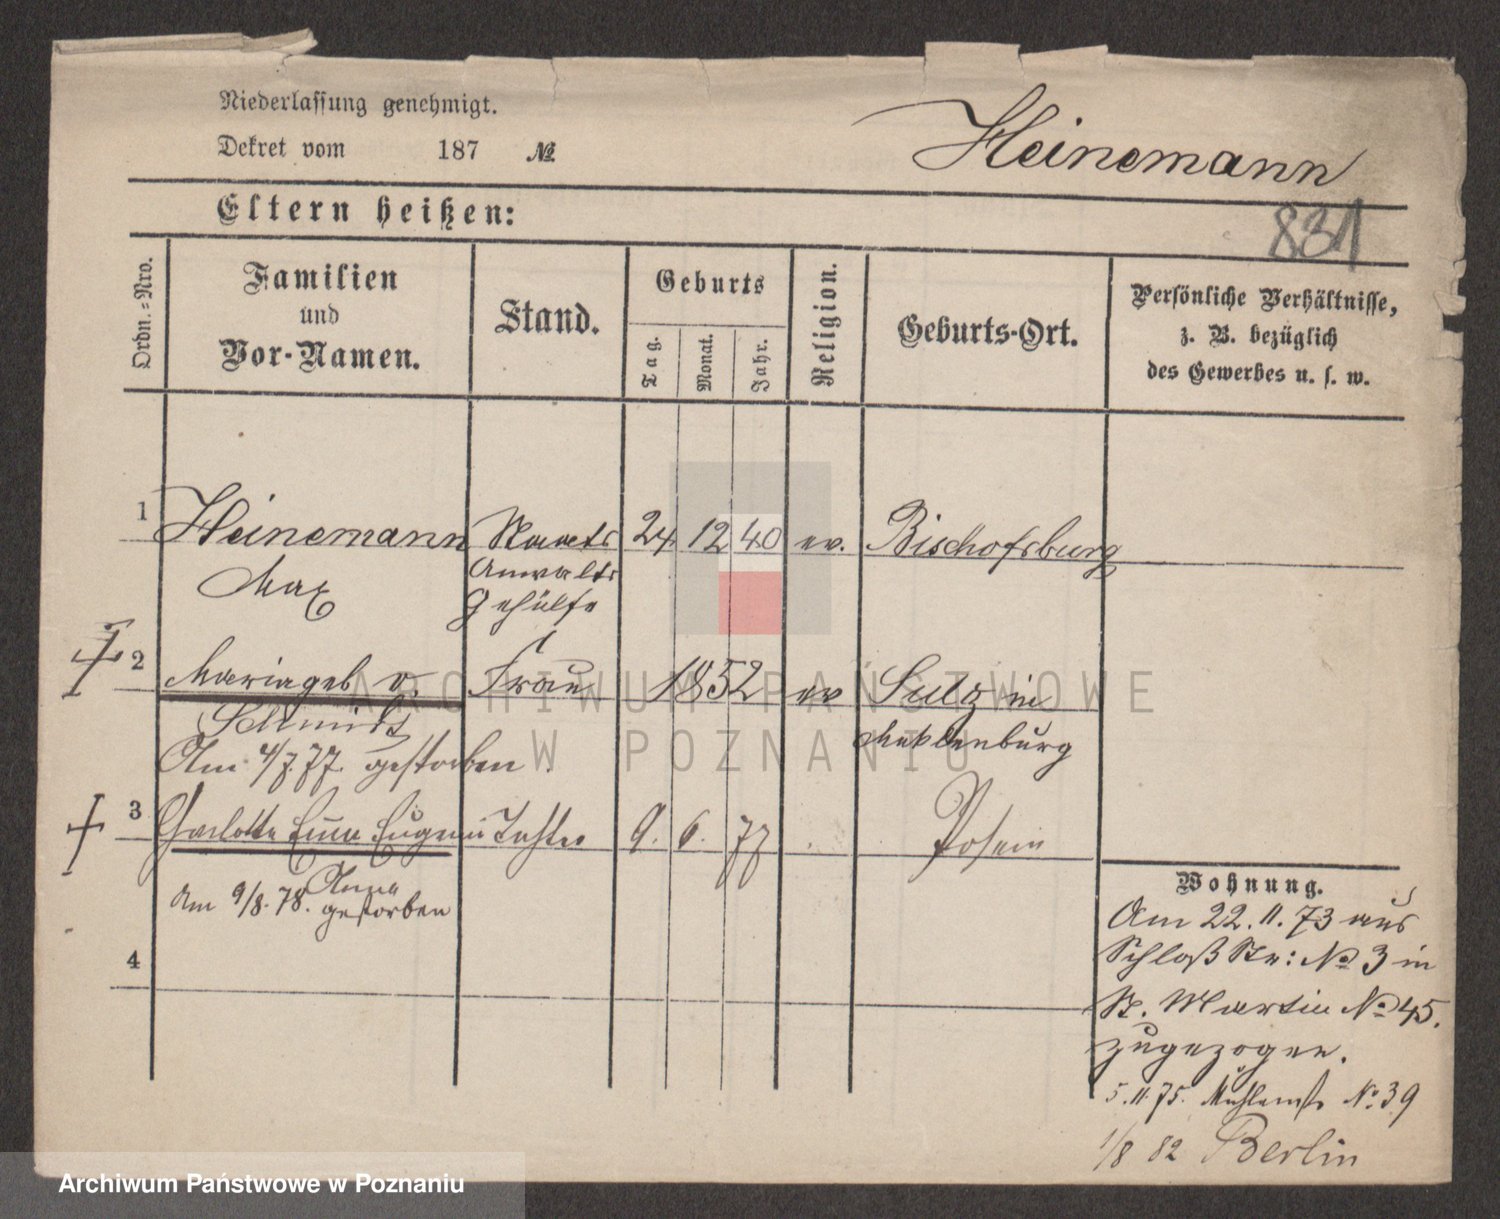 Niederlassung genehmigt.
Dekret vom 187 №
Heinemann
831
Eltern heißen:
Ordn.-Nro.
Familien
und
Vor-Namen.
Stand.
Geburts
Tag.
Monat.
Jahr.
Religion.
Geburts-Ort.
Persönliche Verhältnisse,
z. B. bezüglich
des Gewerbes u. s. w.
1 Heinemann Staats 24. 12 40 ev. Bischofsburg
Max Anwalts
Gehülfe
2 Maria geb v. Frau 1852 ev Sulz in
Schmidt Meklenburg
Am 4/7. 77. gestorben.
3 Charlotte Emma Eugenie Tochter 9. 6. 77 Posen
Anna
Am 9/8. 78. gestorben
4
Wohnung.
Am 22. 11. 73 aus
Schloß Str: № 3 in
St. Martin № 45.
zugezogen.
5. 11. 75. Mühlenstr № 39
1/8 82 Berlin
ARCHIWUM PAŃSTWOWE
W POZNANIU
Archiwum Państwowe w Poznaniu